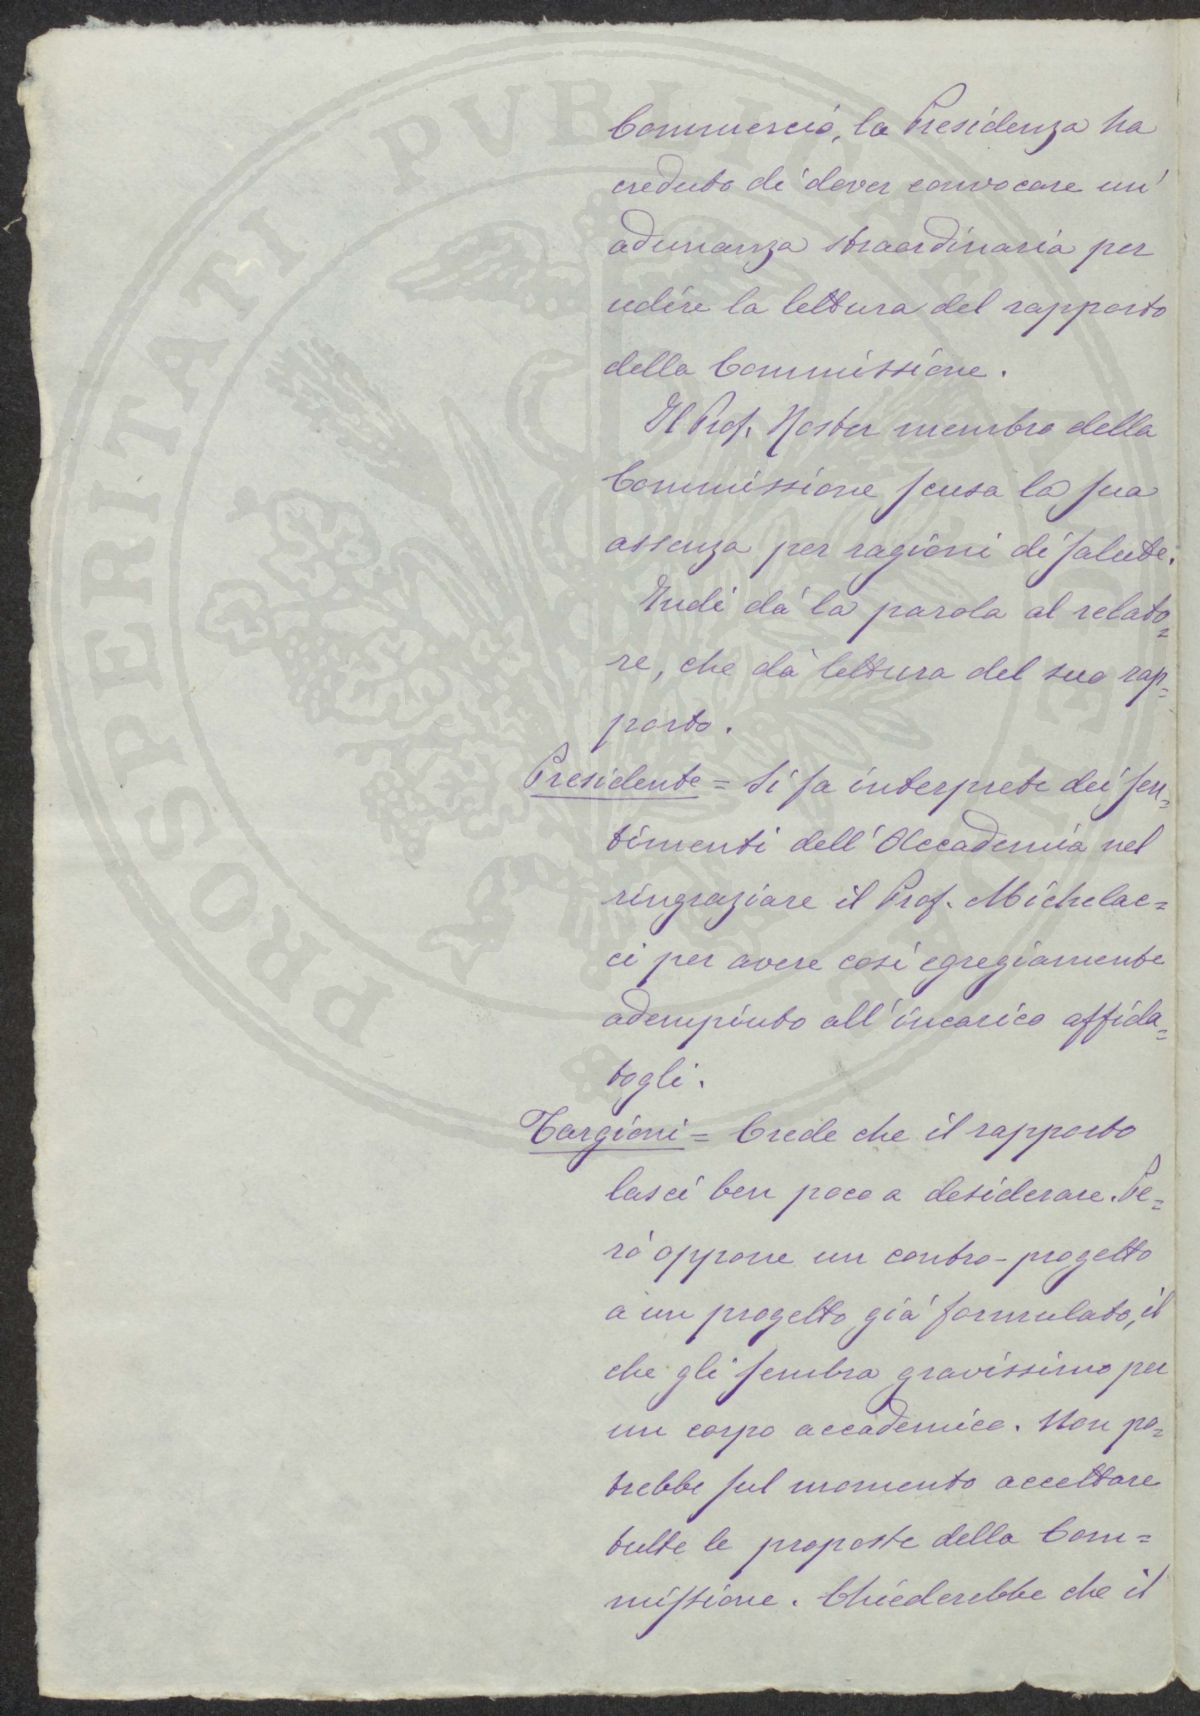 Commercio, la Presidenza ha
creduto di dover convocare un'
adunanza straordinaria per
udire la lettura del rapporto
della Commissione.
Il Prof. Roster membro della
Commissione scusa la sua
assenza per ragioni di salute.
Indi dà la parola al relato=
re, che dà lettura del suo rap=
porto.
Presidente = Si fa interprete dei sen=
timenti dell'Accademia nel
ringraziare il Prof. Michelac=
ci per avere così egregiamente
adempiuto all'incarico affida=
togli.
Targioni = Crede che il rapporto
lasci ben poco a desiderare. Pe=
rò oppone un contro-progetto
a un progetto già formulato, il
che gli sembra gravissimo per
un corpo accademico. Non po=
trebbe sul momento accettare
tutte le proposte della Com=
missione. Chiederebbe che il
PROSPERITATI PVBLICAE AVGENDAE